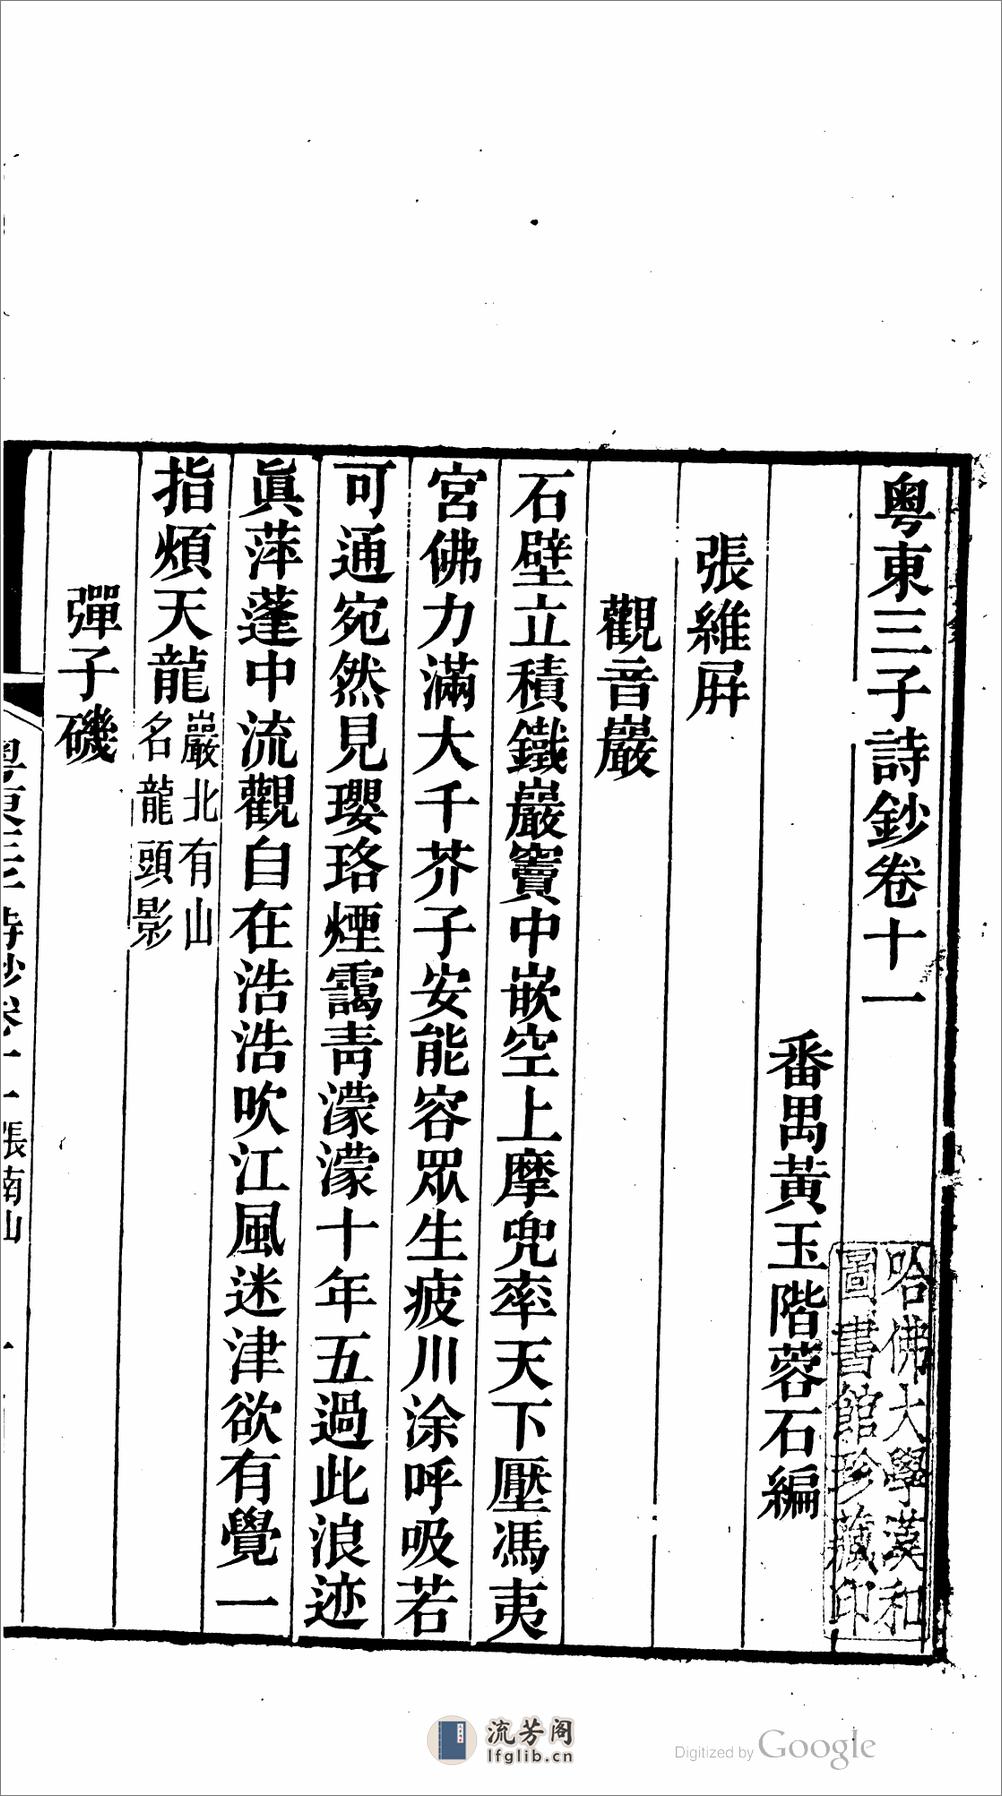 粵東三子詩鈔卷十一
番禺黃玉階蓉石編
張維屏
觀音巖
石壁立積鐵巖竇中嵌空上摩兜率天下壓馮夷
宮佛力滿大千芥子安能容眾生疲川涂呼吸若
可通宛然見瓔珞煙靄靑濛濛十年五過此浪迹
眞萍蓬中流觀自在浩浩吹江風迷津欲有覺一
指煩天龍巖北有山
名龍頭影
彈子磯
粵東三子詩鈔卷十一 張南山 一
哈佛大學漢和
圖書館珍藏印
流芳阁
lfglib.cn
Digitized by Google